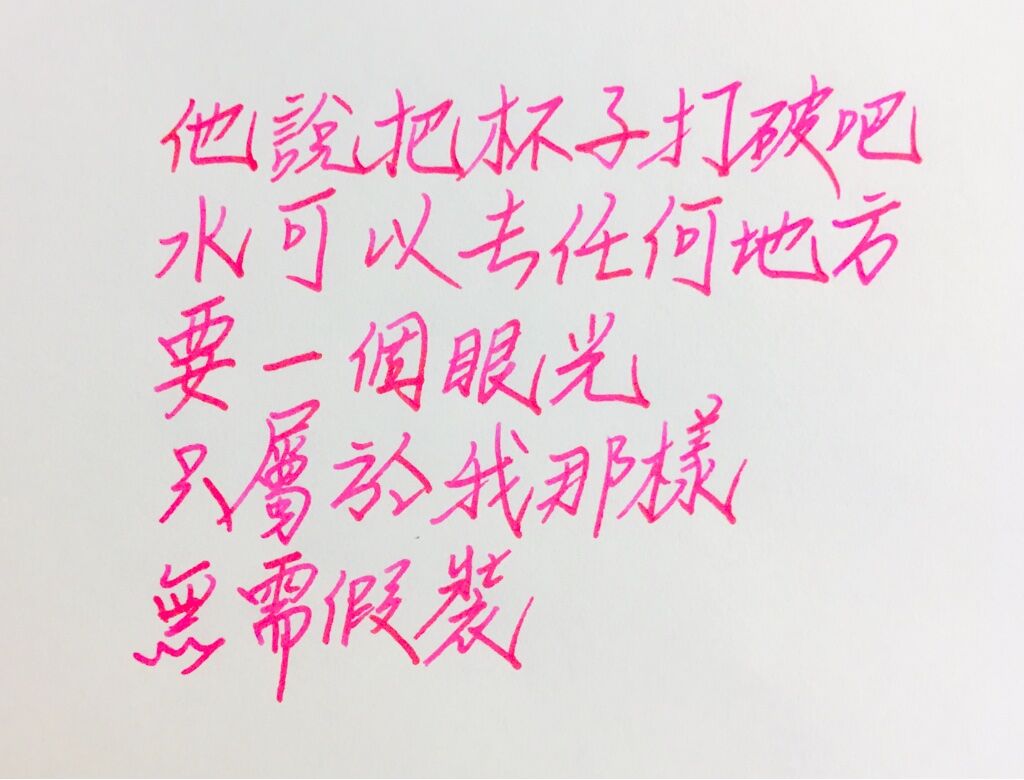 他說把杯子打破吧
水可以去任何地方
要一個眼光
只屬於我那樣
無需假裝